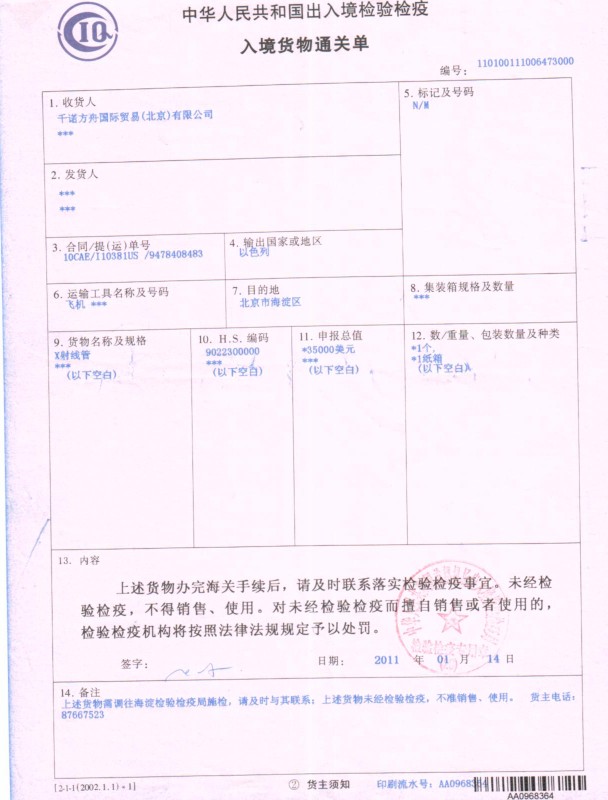 CIQ
中华人民共和国出入境检验检疫
入境货物通关单
编号: 110100111006473000
1. 收货人
千诺方舟国际贸易(北京)有限公司
***
5. 标记及号码
N/M
2. 发货人
***
***
3. 合同/提(运)单号
10CAE/I10381US /9478408483
4. 输出国家或地区
以色列
6. 运输工具名称及号码
飞机 ***
7. 目的地
北京市海淀区
8. 集装箱规格及数量
***
9. 货物名称及规格
X射线管
***
(以下空白)
10. H.S. 编码
9022300000
***
(以下空白)
11. 申报总值
*35000美元
***
(以下空白)
12. 数/重量、包装数量及种类
*1个,
*1纸箱
(以下空白)
13. 内容
上述货物办完海关手续后，请及时联系落实检验检疫事宜。未经检
验检疫，不得销售、使用。对未经检验检疫而擅自销售或者使用的，
检验检疫机构将按照法律法规规定予以处罚。
签字: 日期: 2011 年 01 月 14 日
14. 备注
上述货物需调往海淀检验检疫局施检，请及时与其联系；上述货物未经检验检疫，不准销售、使用。 货主电话:
87667523
[2-1-1(2002.1.1)*1]
② 货主须知
印刷流水号: AA0968364
AA0968364